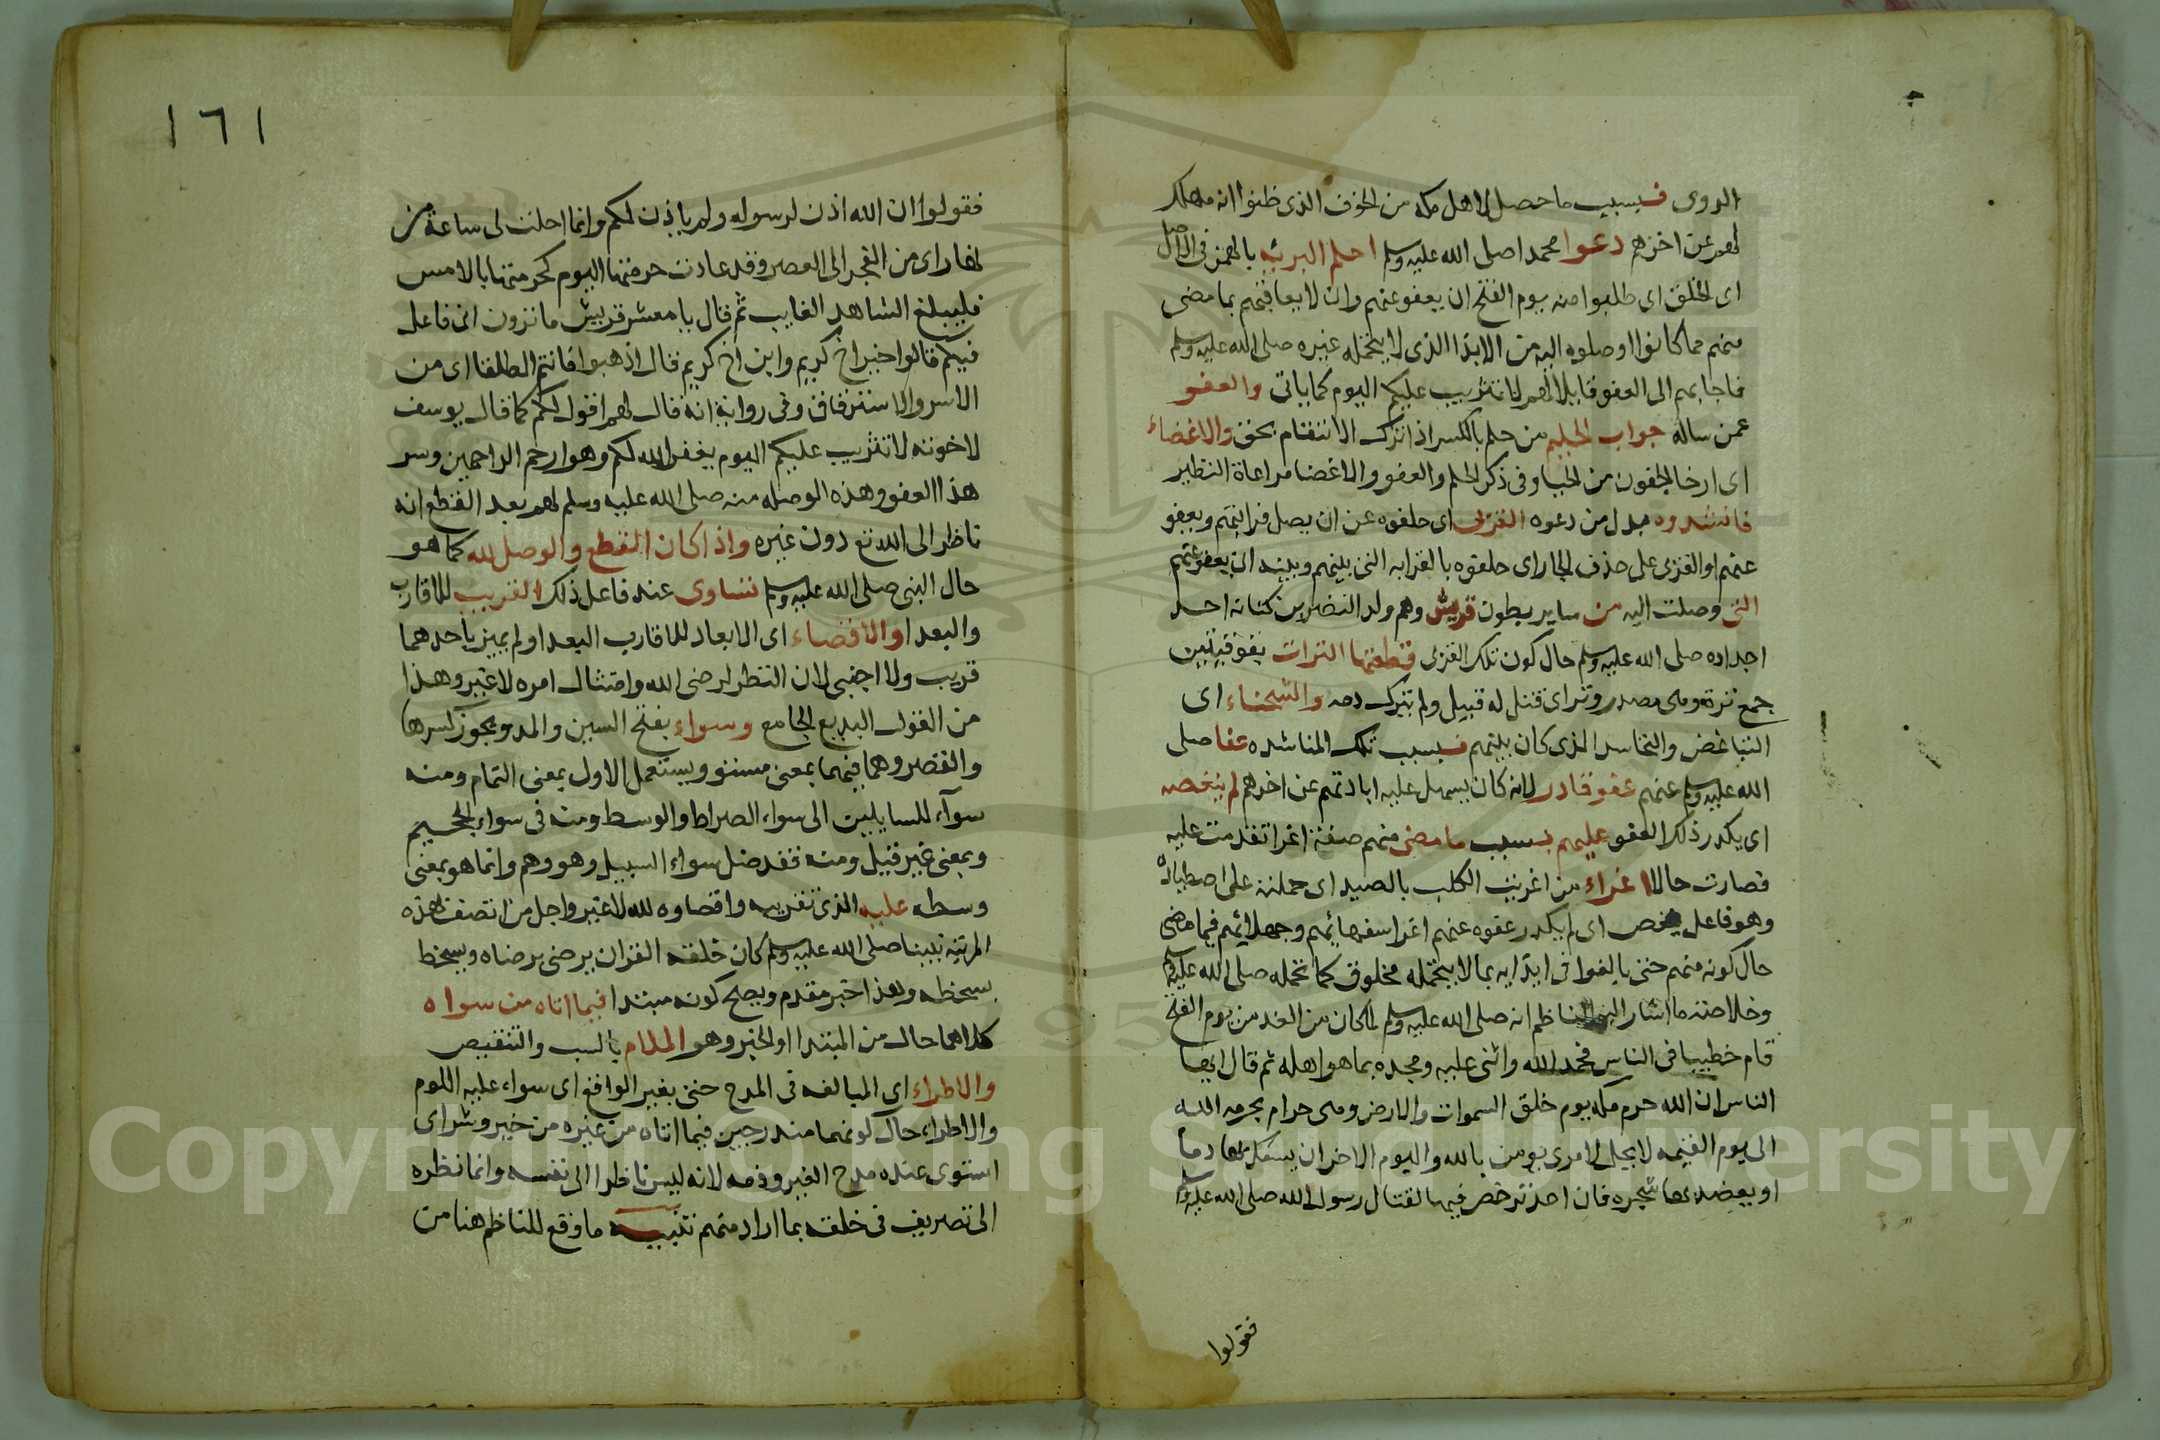 الروى فبسبب ما حصل لاهل مكه من الخوف الذى ظنوا انه مهلك
لهم عن اخرهم دعوا محمدا صلى الله عليه وسلم احلم البرية بالهمز فى الاصل
اى الخلق اى طلبوا منه يوم الفتح ان يعفو عنهم وان لا يعاقبهم بما مضى
منهم مما كانوا اوصلوه اليه من الايذا الذى لا يحتمله غيره صلى الله عليه وسلم
فاجابهم الى العفو قايلا لهم لا تثريب عليكم اليوم كما ياتى والعفو
عمن ساله جواب الحليم من حلم بالكسر اذا ترك الانتقام بحق والاغضاء
اى ارخا الجفون من الحيا وفى ذكر الحلم والعفو والاغضا مراعاة النظير
فانشدوه بدل من دعوه القربى اى حلفوه عن ان يصل قرابتهم ويعفو
عنهم او القربى على حذف الجار اى حلفوه بالقرابه التى بينهم وبينه ان يعفو عنهم
التى وصلت اليه من ساير بطون قريش وهم ولد النضر بن كنانه احد
اجداده صلى الله عليه وسلم حال كون تلك القربى قطعتها الترات بفوقيتين
جمع ترة وهى مصدر وتر اى قتل له قتيل ولم يترك دمه والشحناء اى
التباغض والتحاسد الذى كان بينهم فبسبب تلك المناشده عفا صلى
الله عليه وسلم عنهم عفو قادر لانه كان يسهل عليه ابادتهم عن اخرهم لم ينغصه
اى يكدر ذلك العفو عليهم بسبب ما مضى منهم صفة اغرا تقدمت عليه
فصارت حالا اغراء من اغريت الكلب بالصيد اى حملته على اصطياده
وهو فاعل ينغص اى لم يكدر عفوه عنهم اغرا سفهائهم وجهلائهم فيما مضى
حال كونه منهم حتى بالغوا فى ايذايه بما لا يحتمله مخلوق كما تحمله صلى الله عليه وسلم
وخلاصته ما اشار اليه الناظم انه صلى الله عليه وسلم لما كان من الغد من يوم الفتح
قام خطيبا فى الناس فحمد الله واثنى عليه ومجده بما هو اهله ثم قال ايها
الناس ان الله حرم مكه يوم خلق السموات والارض وهى حرام بحرمه الله
الى يوم القيمه لا يحل لامرى يومن بالله واليوم الاخر ان يسفك بها دما
او يعضد بها شجره فان احد ترخص فيها لقتال رسول الله صلى الله عليه وسلم
فقولوا
١٦١
فقولوا ان الله اذن لرسوله ولم ياذن لكم وانما احلت لى ساعة من
نهار اى من الفجر الى العصر وقد عادت حرمتها اليوم كحرمتها بالامس
فليبلغ الشاهد الغايب ثم قال يا معشر قريش ما ترون انى فاعل
فيكم قالوا خيرا اخ كريم وابن اخ كريم قال اذهبوا فانتم الطلقا اى من
الاسر والاسترقاق وفى رواية انه قال لهم اقول لكم كما قال يوسف
لاخوته لا تثريب عليكم اليوم يغفر الله لكم وهو ارحم الراحمين وسر
هذا العفو وهذه الوصله منه صلى الله عليه وسلم لهم بعد القطع انه
ناظر الى الله تع دون غيره واذا كان القطع والوصل لله كما هو
حال النبى صلى الله عليه وسلم تساوى عند فاعل ذلك القريب للاقارب
والبعدا والاقصاء اى الابعاد للاقارب البعدا ولم يميز باحدهما
قريب ولا اجنبى لان النظر لرضى الله وامتثال امره لا غير وهذا
من القول البديع الجامع وسواء بفتح السين والمد ويجوز كسرها
والقصر وهما فيهما بمعنى مستو ويستعمل الاول بمعنى التمام ومنه
سواء للسايلين الى سواء الصراط والوسط ومنه فى سواء الجحيم
وبمعنى غير قيل ومنه فقد ضل سواء السبيل وهو وهم وانما هو بمعنى
وسطه عليه الذى تقريبه واقصاوه لله لا غير واجل من اتصف بهذه
المرتبه نبينا صلى الله عليه وسلم كان خلقه القران يرضى برضاه ويسخط
بسخطه وهذا خبر مقدم ويصح كونه مبتدا فيما اتاه من سواه
كلاهما حال من المبتدا او الخبر وهو الملام بالسب والتنقيص
والاطراء اى المبالغه فى المدح حتى بغير الواقع اى سواء عليه اللوم
والاطراء حال كونهما مندرجين فيما اتاه من غيره من خير وشر اى
استوى عنده مدح الغير وذمه لانه ليس ناظرا الى نفسه وانما نظره
الى تصريف فى خلقه بما اراد منهم تنبيه ما وقع للناظم هنا من
Copyright © King Saud University